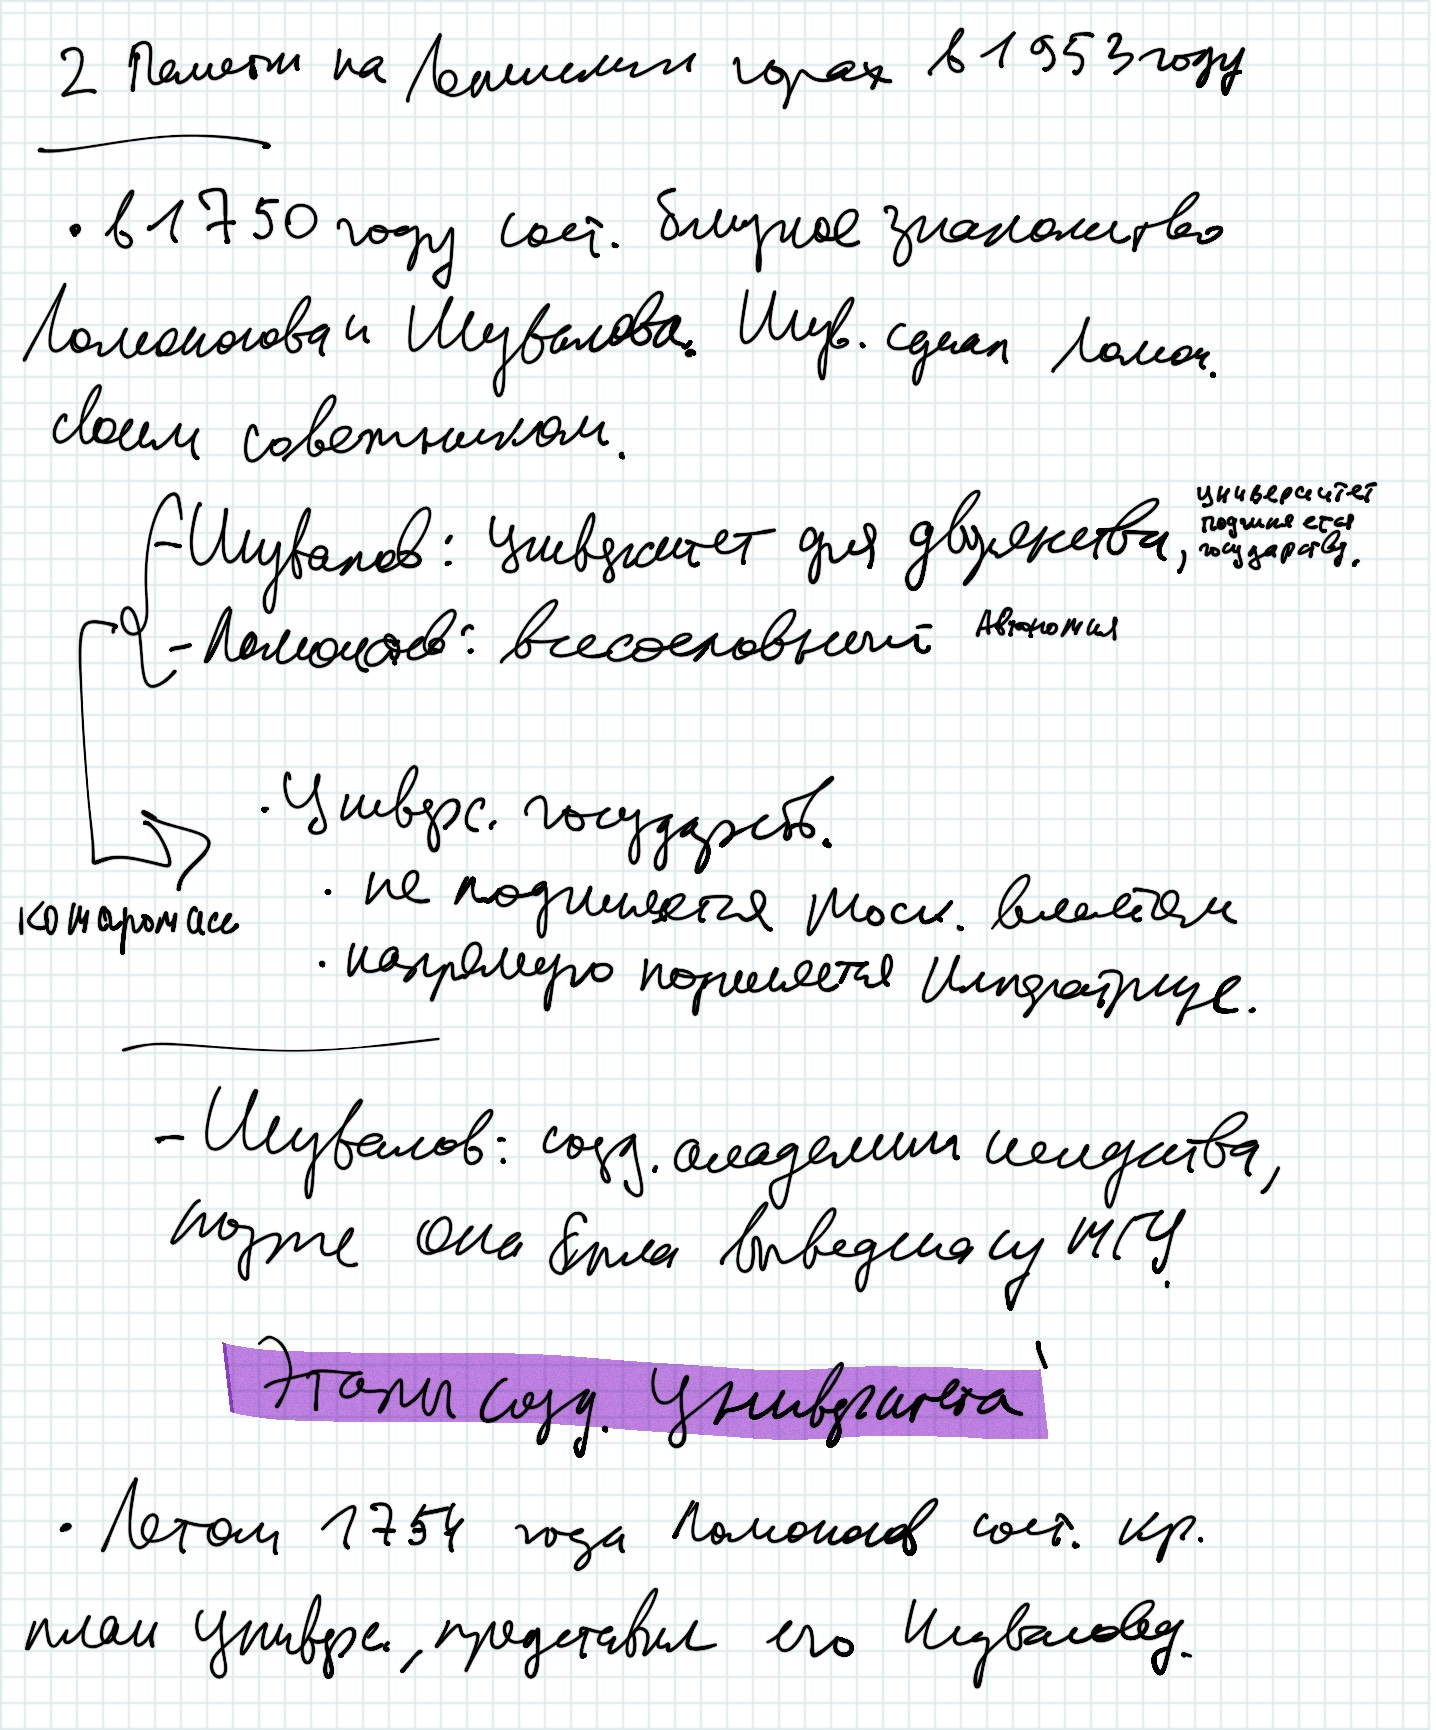 2 Памятн на Ленинских горах в 1953 году
• в 1750 году сост. близкое знакомство
Ломоносова и Шувалова. Шув. сделал Ломон.
своим советником.
- Шувалов: Университет для дворянства, университет
подчиняется
государству.
- Ломоносов: всесословный Автономия
• Универс. государств.
• не подчиняется моск. властям
напрямую Императрице.
- Шувалов: созд. академии искусства,
позже она была выведена из МГУ.
Этапы созд. Университета
• Летом 1754 года Ломоносов сост. кр.
план Универс., представил его Шувалову.